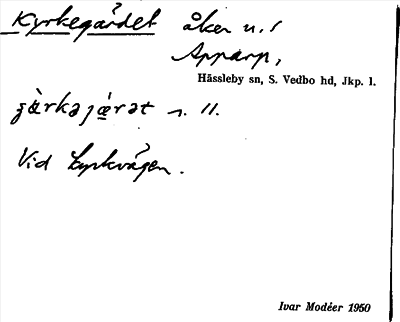 Kyrkegärdet åker n. 1
Apparp,
Hässleby sn, S. Vedbo hd, Jkp. l.
n. 11.
Vid kyrkvägen.
Ivar Modéer 1950